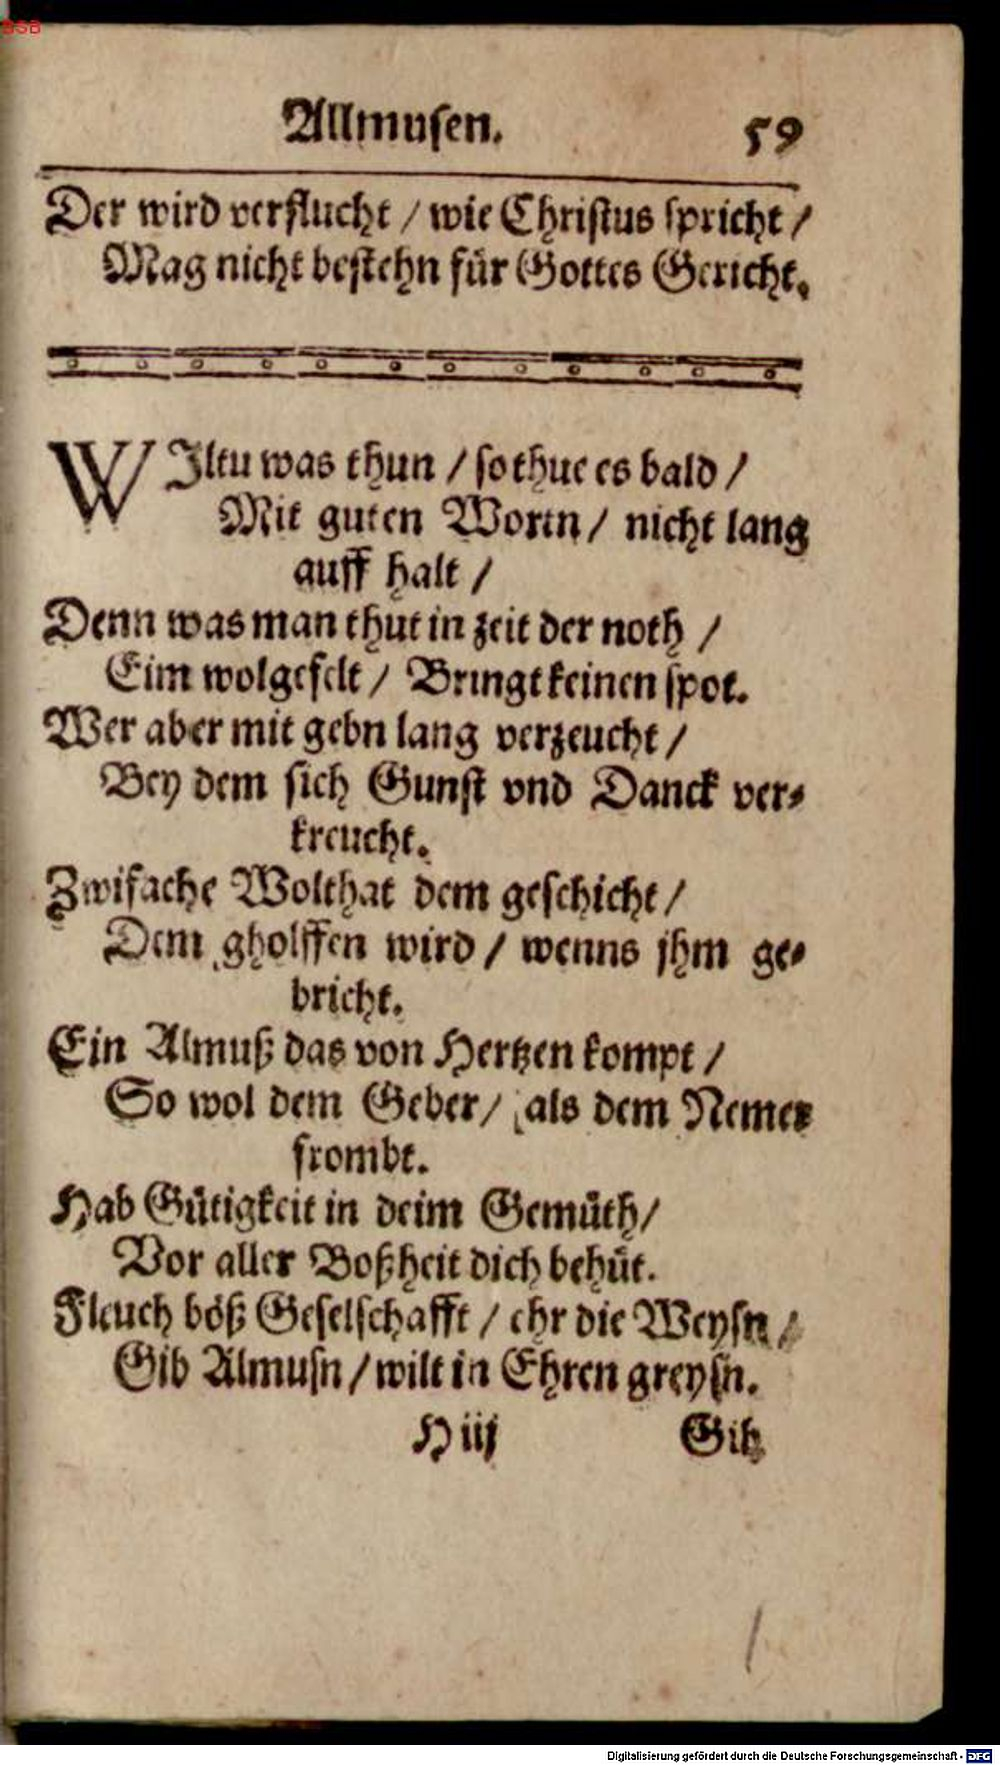 BSB
Allmusen. 59
Der wird verflucht / wie Christus spricht /
Mag nicht bestehn für Gottes Gericht.
WIltu was thun / so thue es bald /
Mit guten Wortn / nicht lang
auff halt /
Denn was man thut in zeit der noth /
Eim wolgefelt / Bringt keinen spot.
Wer aber mit gebn lang verzeucht /
Bey dem sich Gunst vnd Danck ver-
kreucht.
Zwifache Wolthat dem geschicht /
Dem gholffen wird / wenns jhm ge-
bricht.
Ein Almuß das von Hertzen kompt /
So wol dem Geber / als dem Nemer
frombt.
Hab Gütigkeit in deim Gemüth /
Vor aller Boßheit dich behüt.
Fleuch böß Geselschafft / ehr die Weysn /
Gib Almusn / wilt in Ehren greysn.
H iij Gib
Digitalisierung gefördert durch die Deutsche Forschungsgemeinschaft - DFG